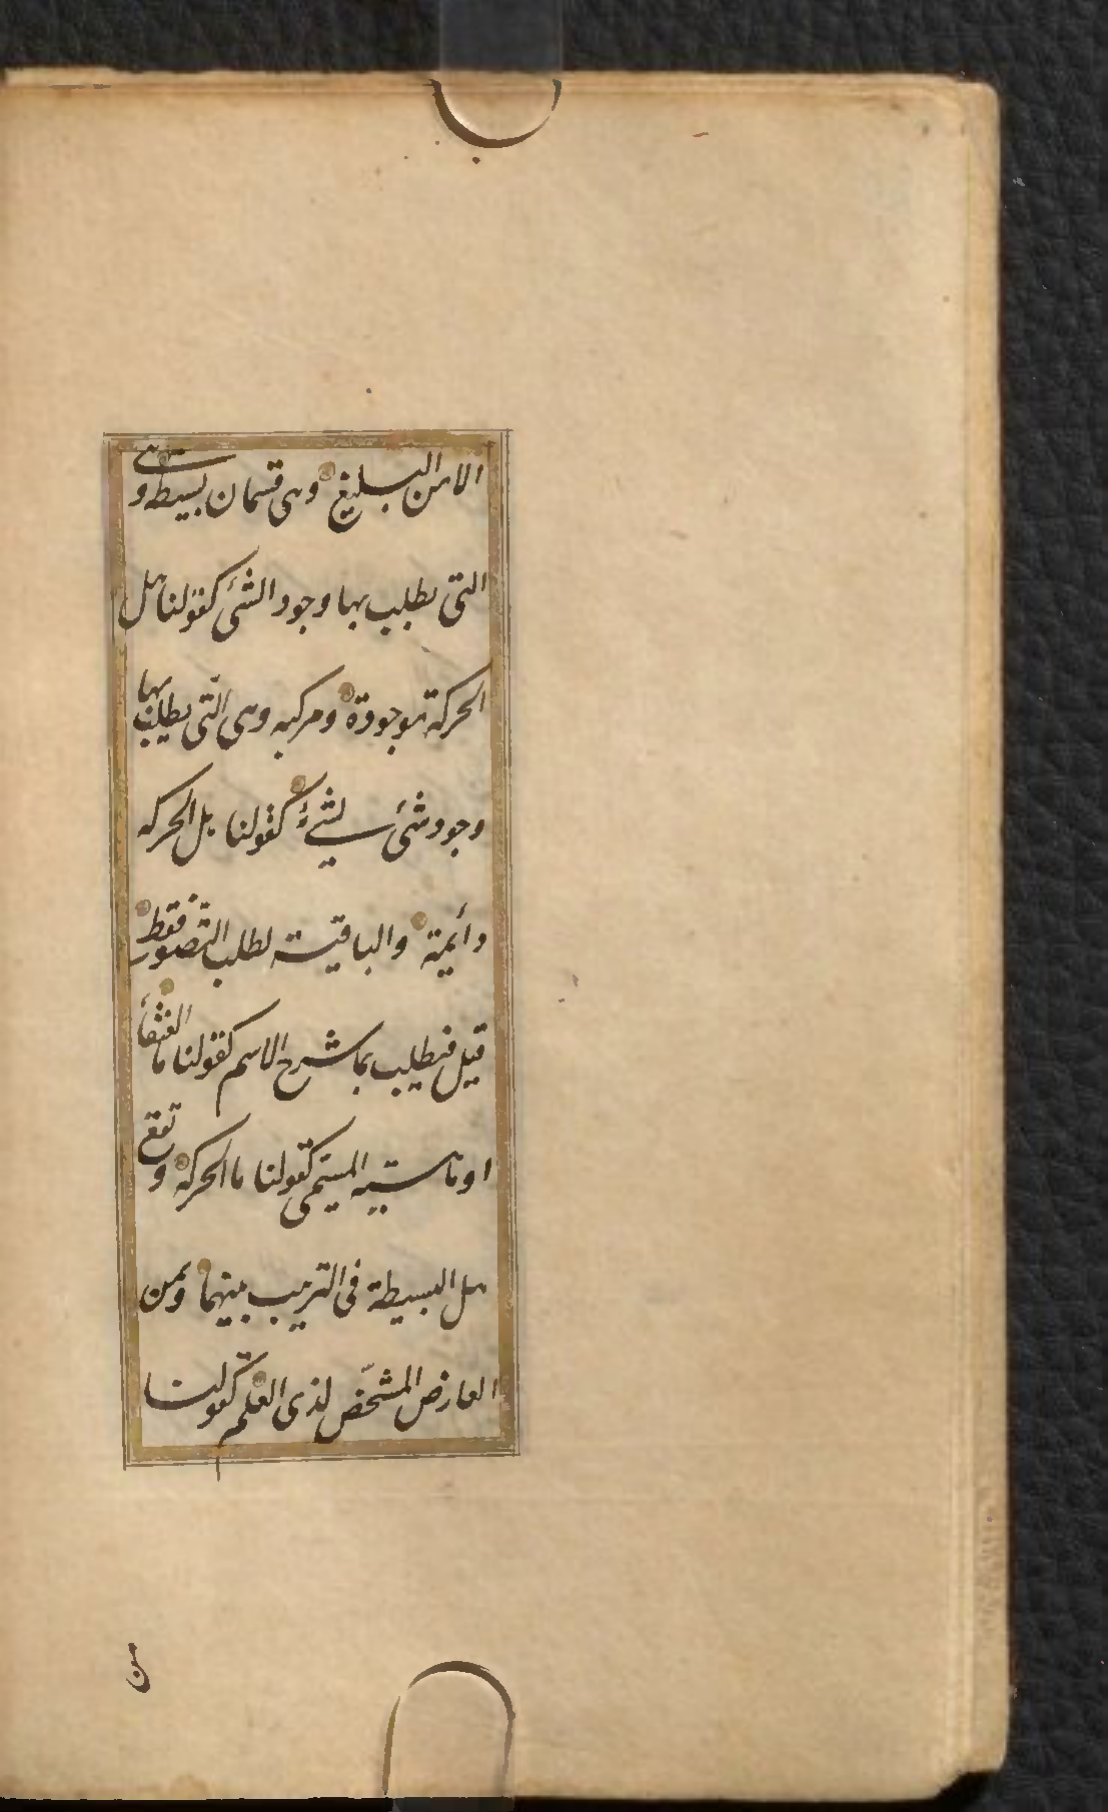 الا من البليغ وهى قسمان بسيطة وهى
التى يطلب بها وجود الشئ كقولنا هل
الحركة موجودة ومركبه وهى التّى يطلب بها
وجود شئ لشئ كقولنا هل الحركه
دائمة والباقية لطلب التصور فقط
قيل فيطلب بما شرح الاسم كقولنا ما العنقاء
او ماهية المسمى كقولنا ما الحركة وتقع
هل البسيطة فى الترتيب بينهما وبمن
العارض المشخّص لذى العلم كقولنا